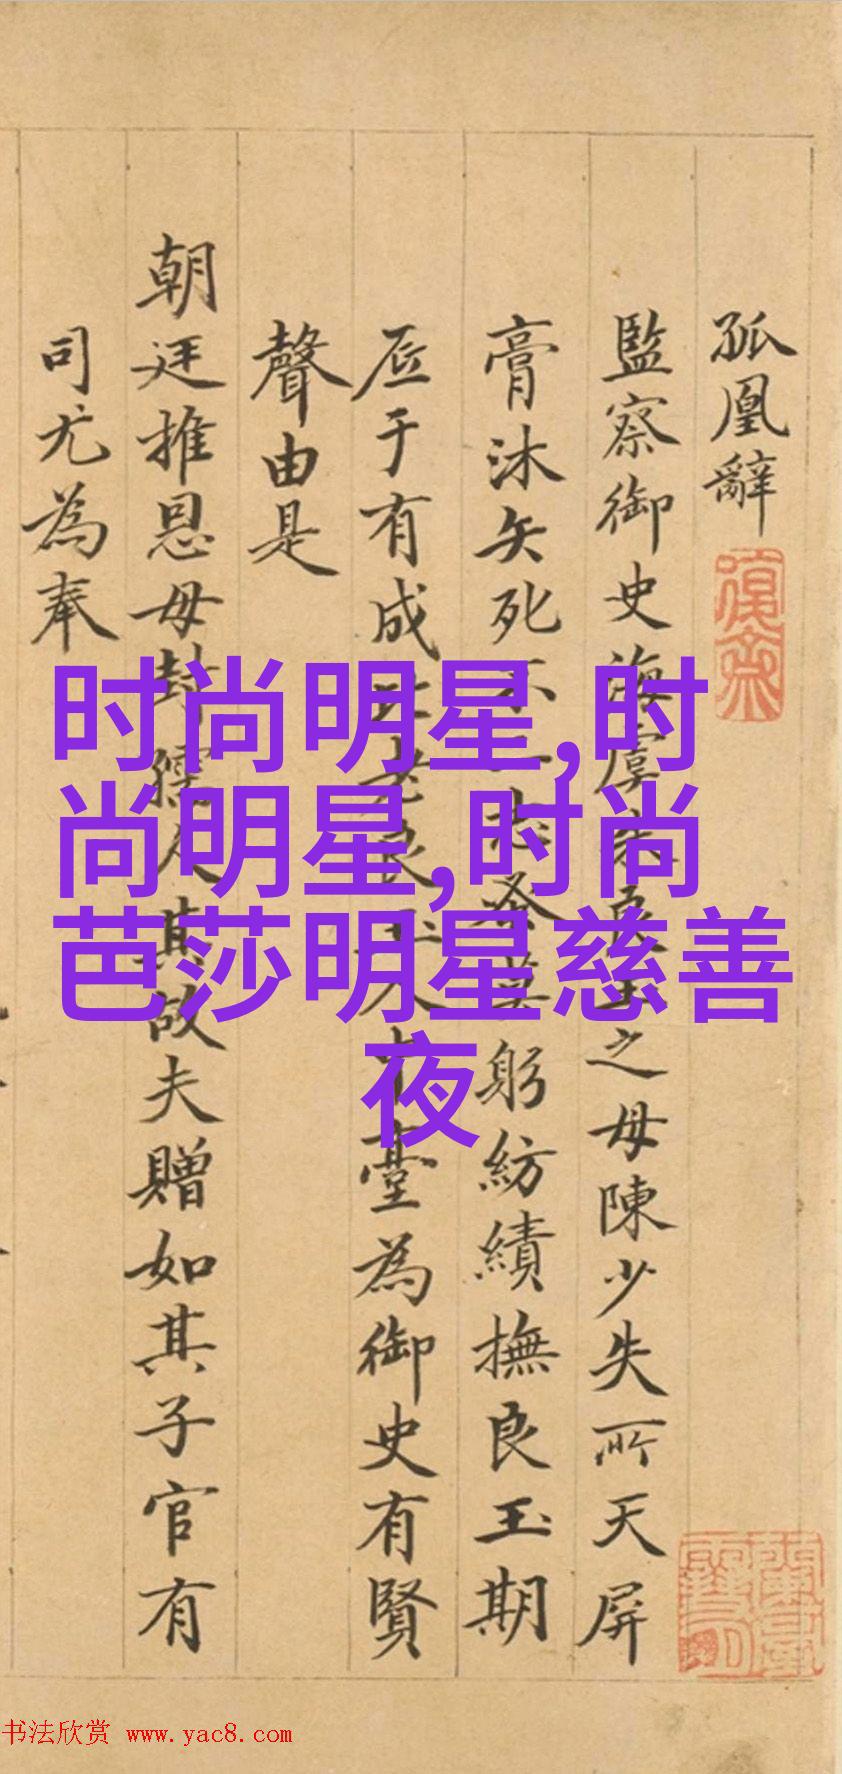 孤凰辭
監察御史海虞朱良玉之母陳少失所天屏
膏沐矢死不二志蚤莫躬紡績撫良玉期
底于有成
臺為御史有賢
聲由是
朝廷推恩母封孺人其故夫贈如其子官有
司尤為奉
时尚明星,时
尚明星,时尚
芭莎明星慈善
夜
书法欣赏 www.yac8.com